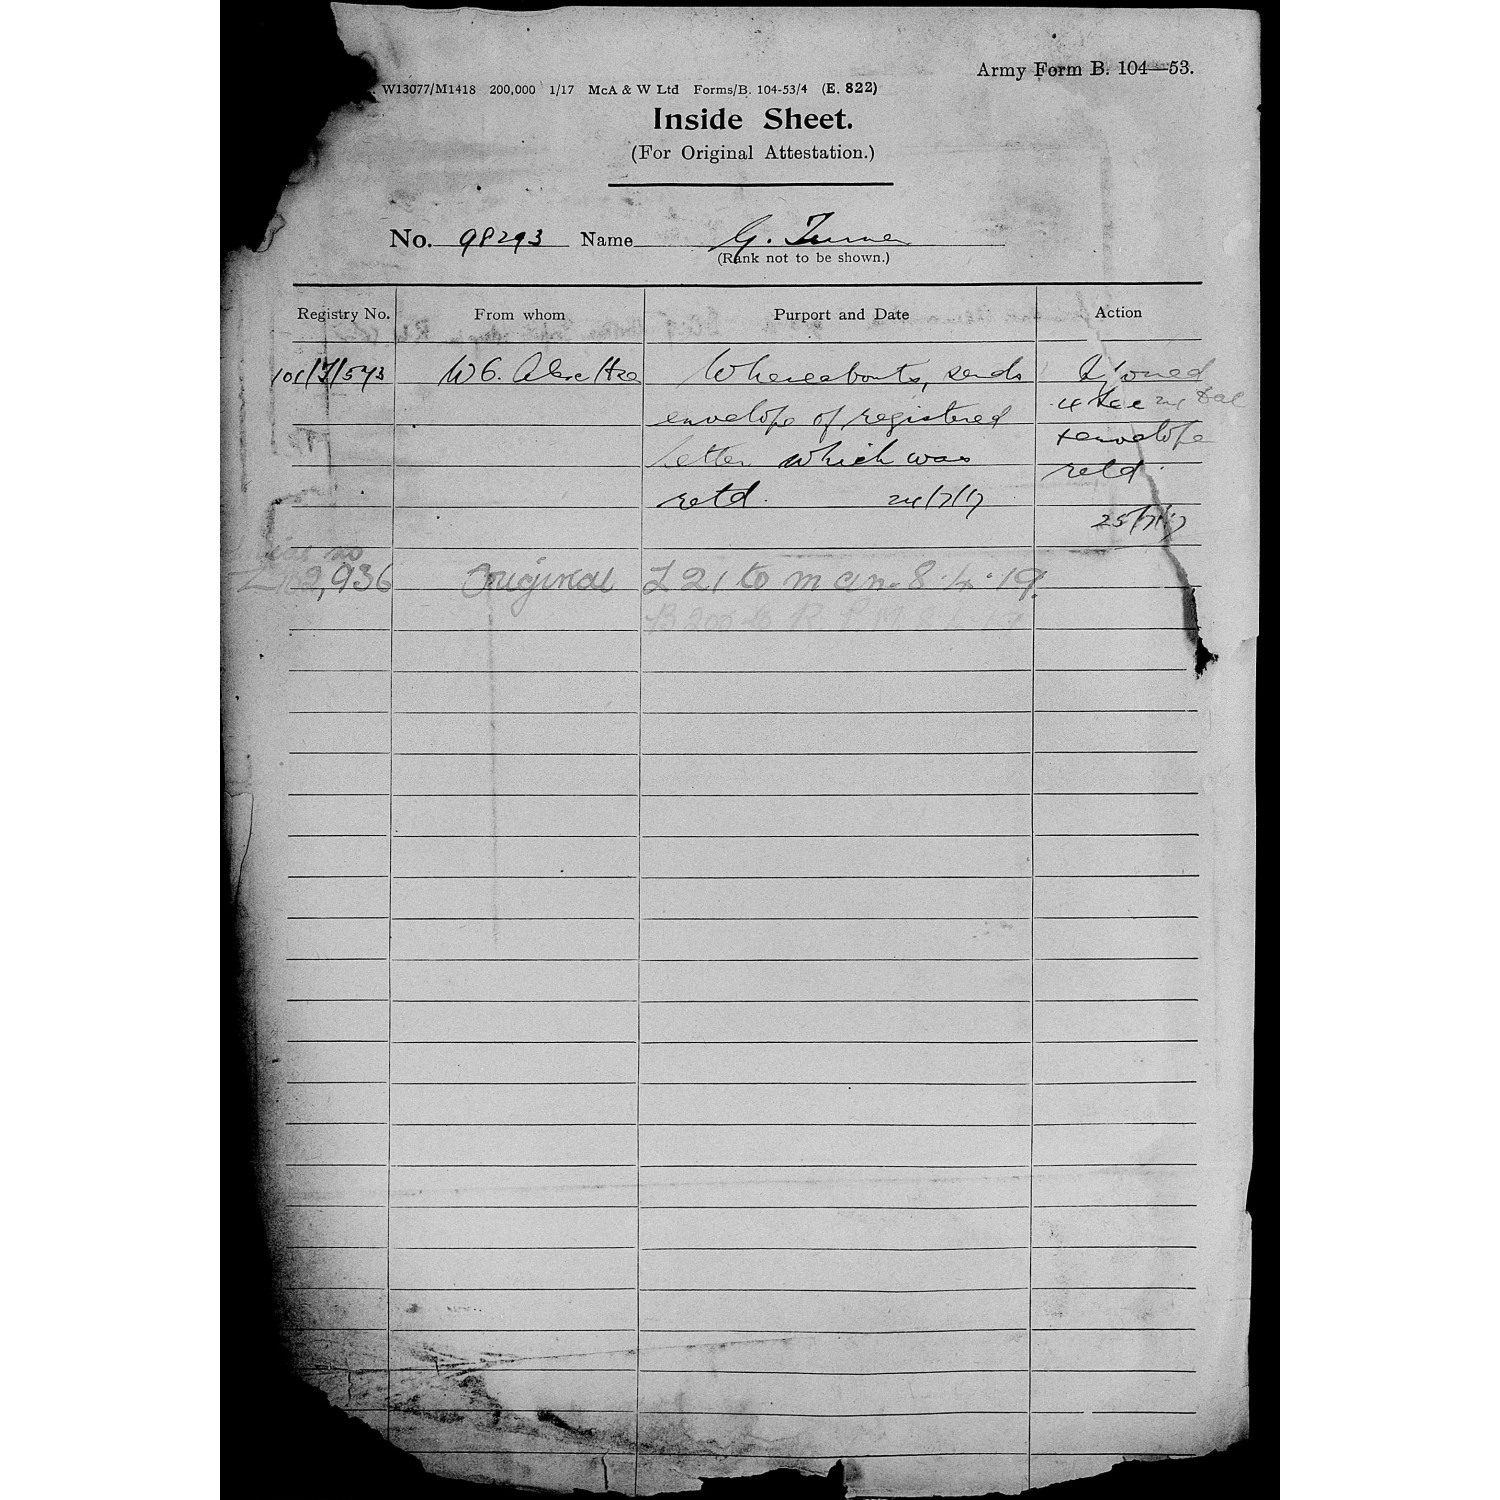 Army Form B. 104—53.
W13077/M1418 200,000 1/17 McA & W Ltd Forms/B. 104-53/4 (E. 822)
Inside Sheet.
(For Original Attestation.)
No. 98293 Name G. Turner
(Rank not to be shown.)
Registry No. From whom Purport and Date Action
101/7/573 Whereabouts, sends
envelope of registered
letter which was + envelope
retd. 24/7/17 retd.
25/7/17
,936 Original Z 21 to man. 8.4.19.